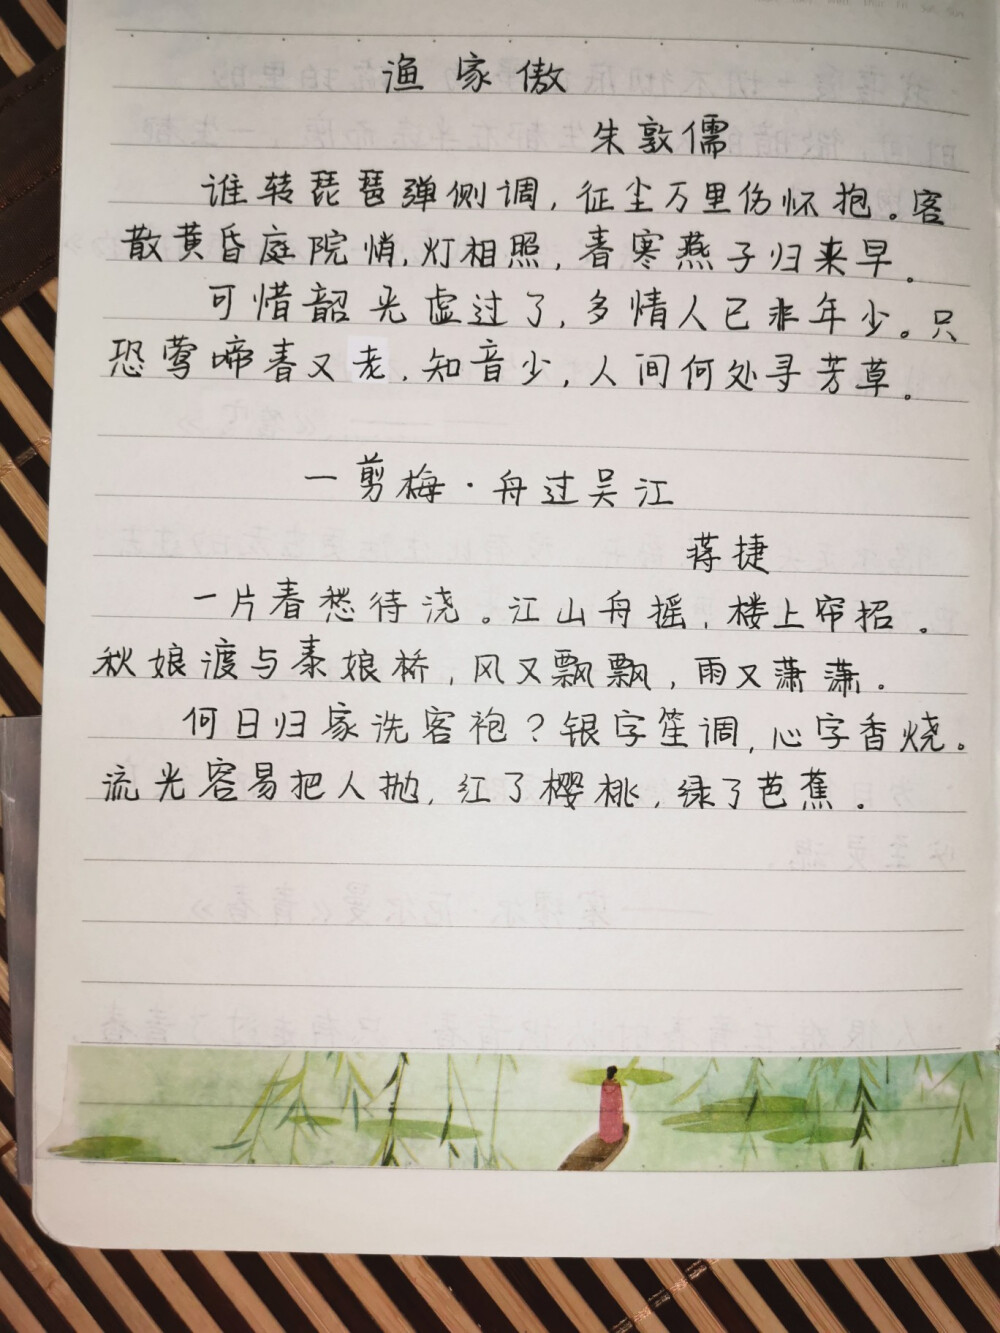 渔家傲
朱敦儒
谁转琵琶弹侧调，征尘万里伤怀抱。客
散黄昏庭院悄，灯相照，春寒燕子归来早。
可惜韶光虚过了，多情人已非年少。只
恐莺啼春又老，知音少，人间何处寻芳草。
一剪梅·舟过吴江
蒋捷
一片春愁待浇。江山舟摇，楼上帘招。
秋娘渡与泰娘桥，风又飘飘，雨又潇潇。
何日归家洗客袍？银字笙调，心字香烧。
流光容易把人抛，红了樱桃，绿了芭蕉。